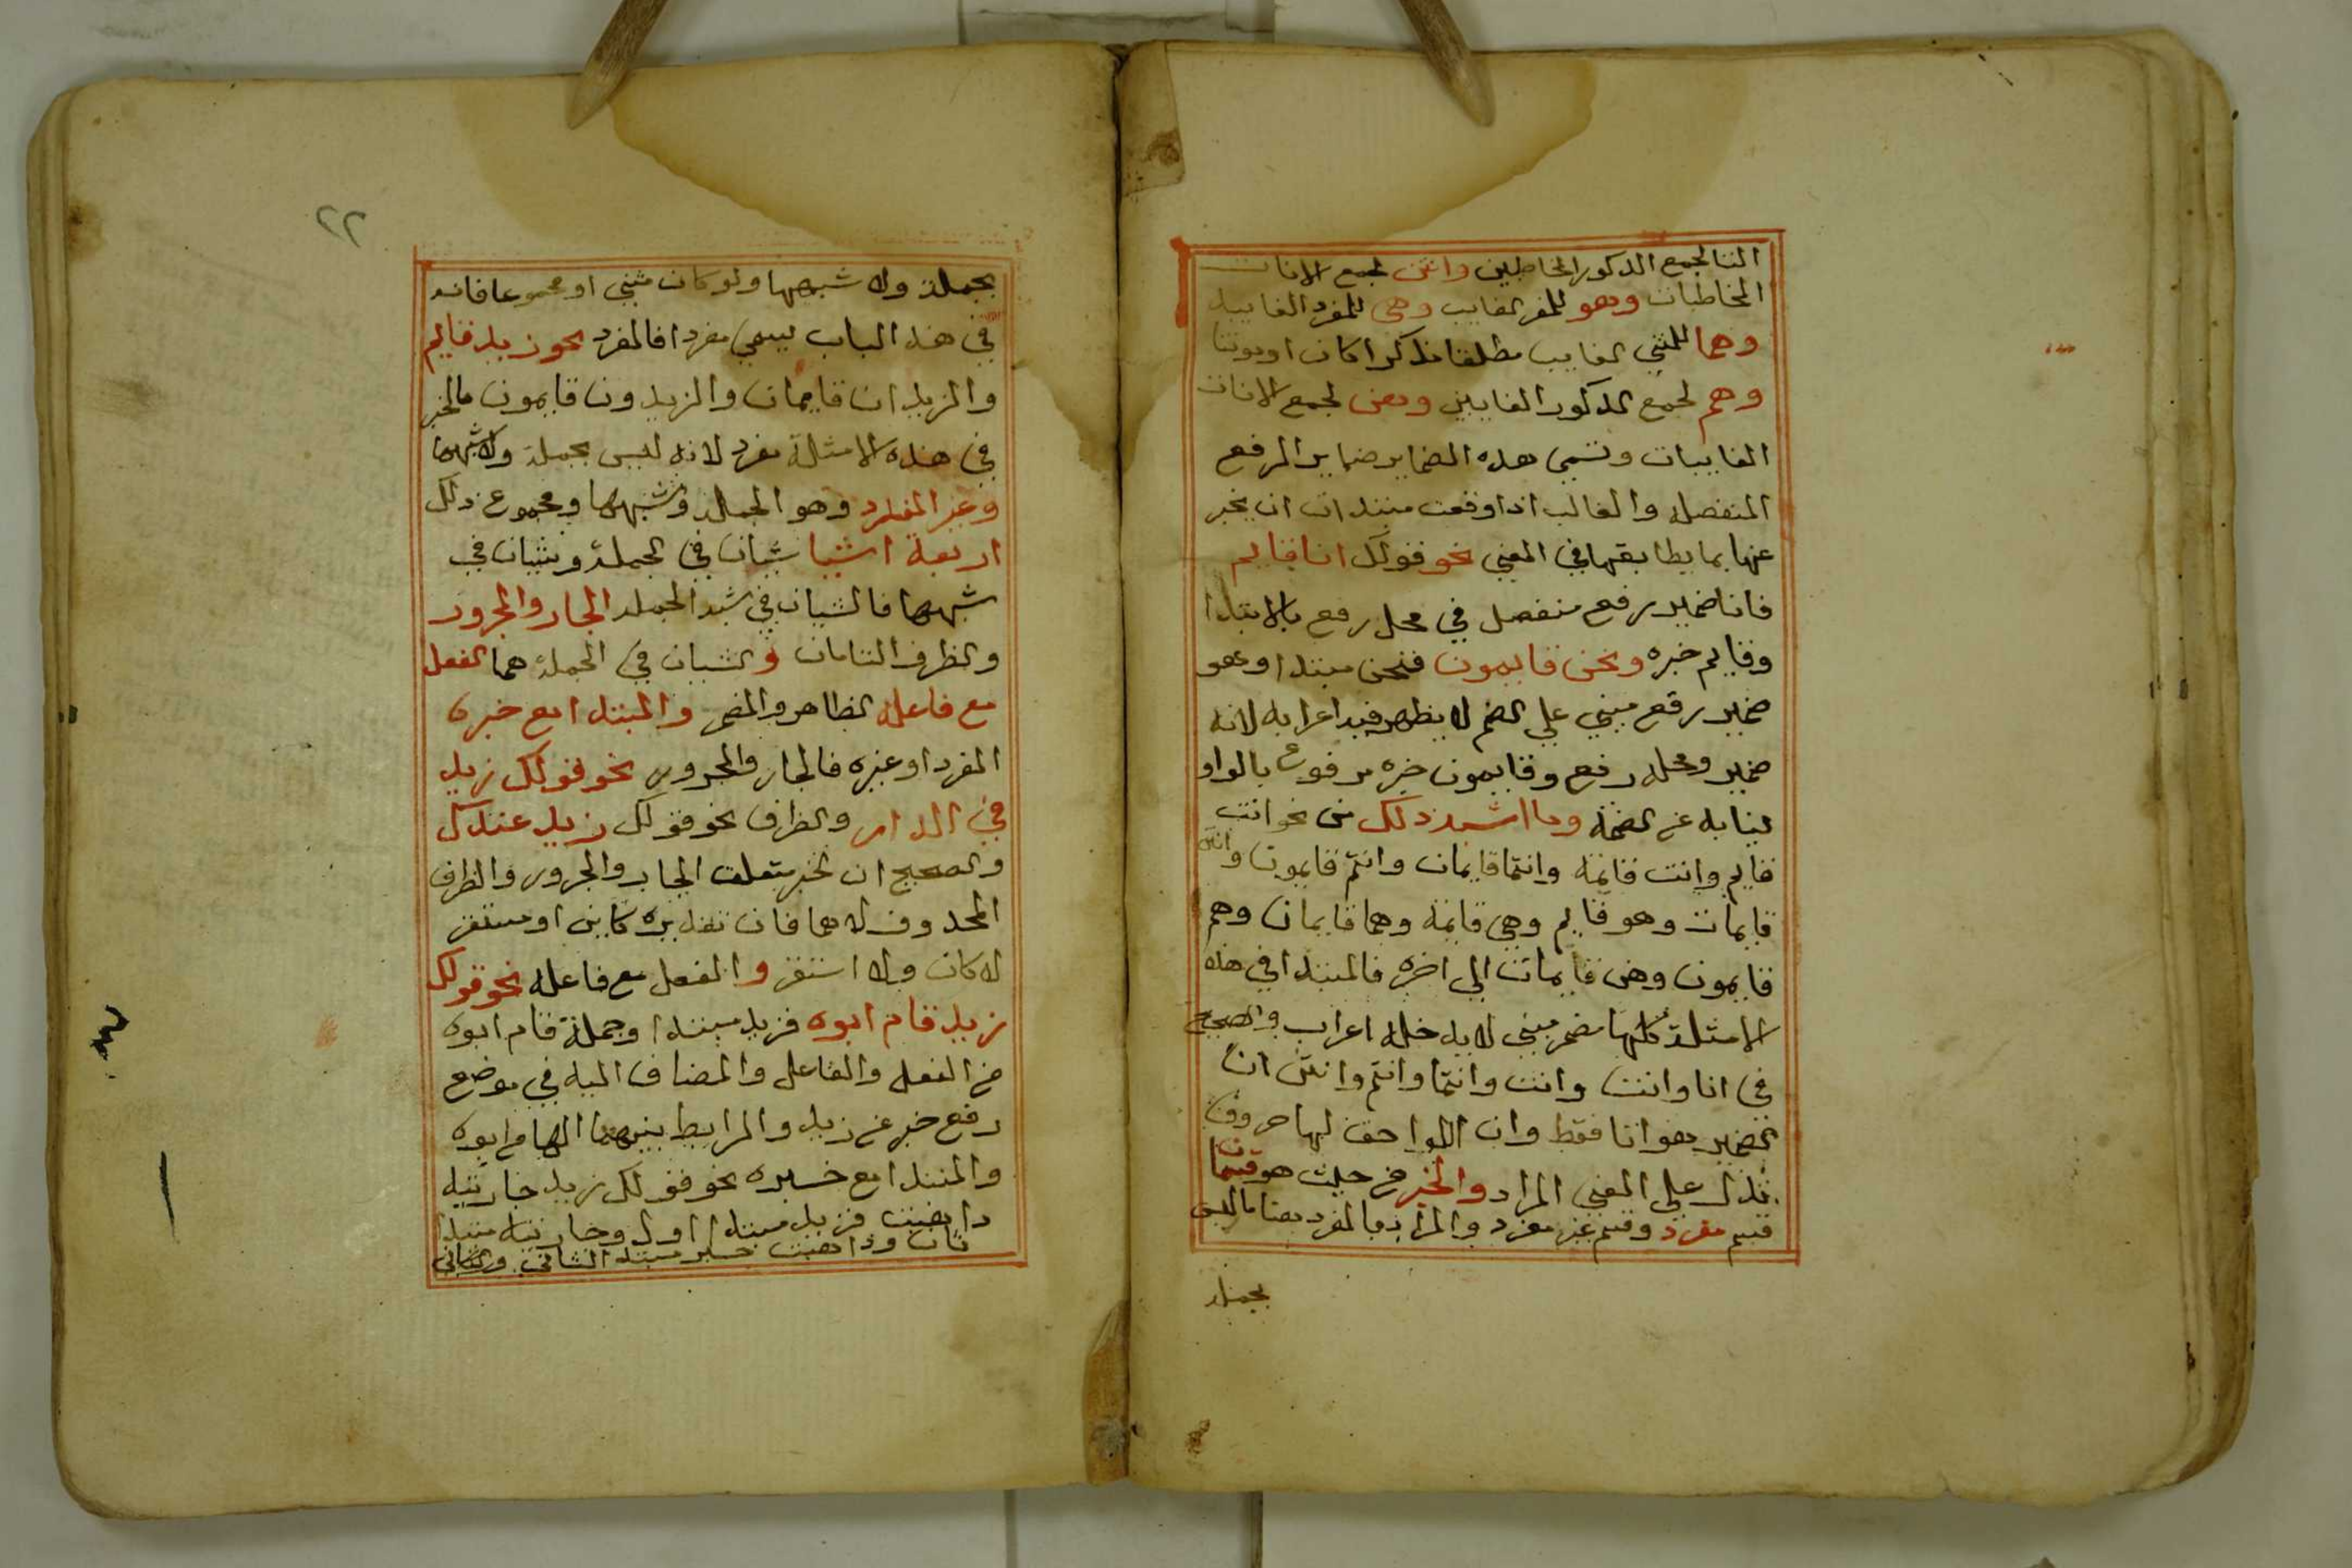 التا لجمع الذكور المخاطبين وانتن لجمع الاناث
المخاطبات وهو للمفرد الغايب وهي للمفرد الغايبة
وهما للمثني الغايب مطلقا مذكرا كان او مونثا
وهم لجمع الذكور الغايبين وهن لجمع الاناث
الغايبات وتسمي هذه الضماير ضماير الرفع
المنفصله والغالب اذا وقعت مبتدات ان يخبر
عنها بما يطابقها في المعني نحو قولك انا قايم
فانا ضمير رفع منفصل في محل رفع بالابتدا
وقايم خبره ونحن قايمون فنحن مبتدا وهو
ضمير رفع مبني علي الضم لا يظهر فيه اعرابه لانه
ضمير ومحله رفع وقايمون خبره مرفوع بالواو
نيابه عن الضمة وما اشبه ذلك من نحو انت
قايم وانت قايمة وانتما قايمان وانتم قايمون وانتن
قايمات وهو قايم وهي قايمة وهما قايمان وهم
قايمون وهن قايمات الي اخره فالمبتدا في هذه
الامثلة كلها مضمر مبني لا يدخله اعراب والصحيح
في انا وانت وانت وانتما وانتم وانتن ان
الضمير هو انا فقط وان اللواحق لها حروف
تدل علي المعني المراد والخبر من حيث هو قسمان
قسم مفرد وقسم غير مفرد والمراد بالمفرد هنا ما ليس
بجملة
٢٢
بجملة ولا شبهها ولو كان مثني او مجموعا فانه
في هذا الباب يسمي مفردا فالمفرد نحو زيد قايم
والزيدان قايمان والزيدون قايمون فالخبر
في هذه الامثلة مفرد لانه ليس بجملة ولا شبهها
وغير المفرد وهو الجملة وشبهها ومجموع ذلك
اربعة اشيا شيان في الجملة وشيان في
شبهها فالشيان في شبه الجملة الجار والمجرور
والظرف التامان والشيان في الجملة هما الفعل
مع فاعله الظاهر والمضمر والمبتدا مع خبره
المفرد او غيره فالجار والمجرور نحو قولك زيد
في الدار والظرف نحو قولك زيد عندك
والصحيح ان الخبر متعلق الجار والمجرور والظرف
المحذوف لا هما فان تقديره كاين او مستقر
لا كان ولا استقر والفعل مع فاعله نحو قولك
زيد قام ابوه فزيد مبتدا وجملة قام ابوه
من الفعل والفاعل والمضاف اليه في موضع
رفع خبر عن زيد والرابط بينهما الها من ابوه
والمبتدا مع خبره نحو قولك زيد جاريته
ذاهبت فزيد مبتدا اول وجاريته مبتدا
ثان وذاهبت خبر مبتدا الثاني والثاني